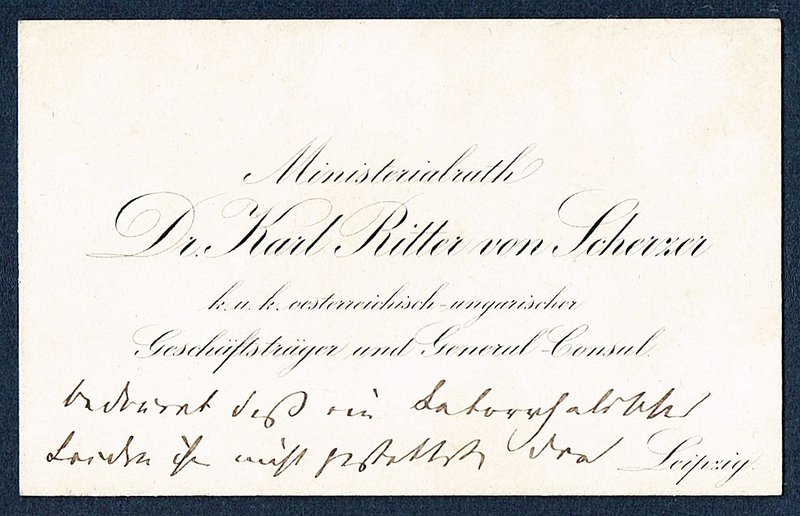 Ministerialrath
Dr. Karl Ritter von Scherzer
k. u. k. oesterreichisch-ungarischer
Geschäftsträger und General-Consul.
bedauert daß ein katarrhalisches
Leiden ihm nicht gestattete den
Leipzig.